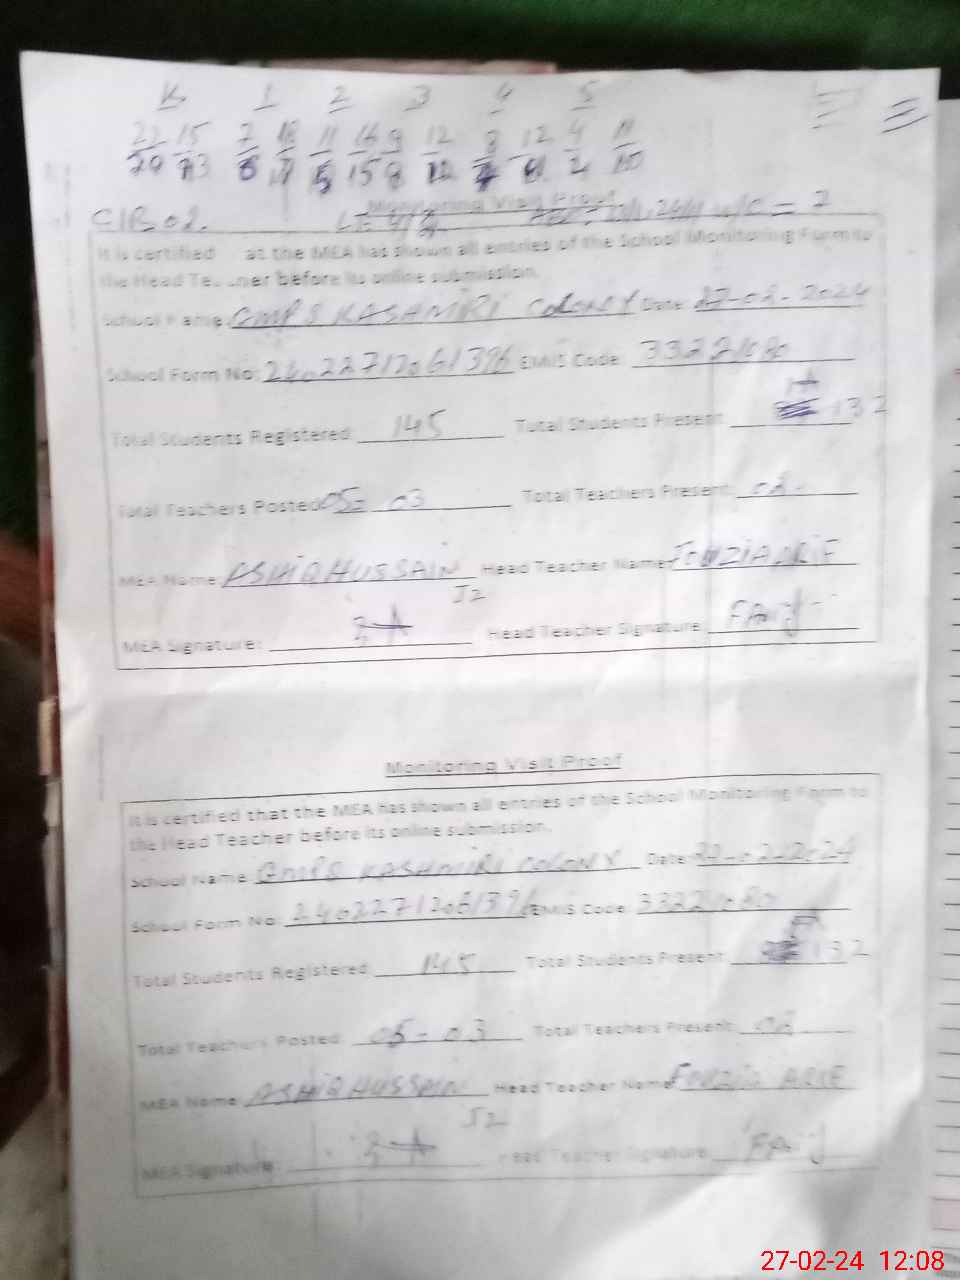 K 1 2 3 4 5
22 15 7 18 11 16 9 12 8 12 4 11
20 13 15 8 12 10
Monitoring Visit Proof
It is certified at the MEA has shown all entries of the School Monitoring Form to
the Head before its online submission.
School Name: GMPS KASHMIRI COLONY Date: 27-02-2024
School Form No: 24022712061396 EMIS Code: 33221080
Total Students Registered: 145 Total Students Present: 132
Total Teachers Posted: 05- 03 Total Teachers Present: 02
MEA Name: ASHIQ HUSSAIN Head Teacher Name: FOUZIA ARIF
J2
MEA Signature: Head Teacher Signature:
Monitoring Visit Proof
It is certified that the MEA has shown all entries of the School Monitoring Form to
the Head Teacher before its online submission.
School Name: GMPS KASHMIRI COLONY Date: 27-02-2024
School Form No: 24022712061396 EMIS Code: 33221080
Total Students Registered: 145 Total Students Present: 132
Total Teachers Posted: 05- 03 Total Teachers Present: 02
MEA Name: ASHIQ HUSSAIN Head Teacher Name: FOUZIA ARIF
J2
MEA Signature: Head Teacher Signature:
27-02-24 12:08